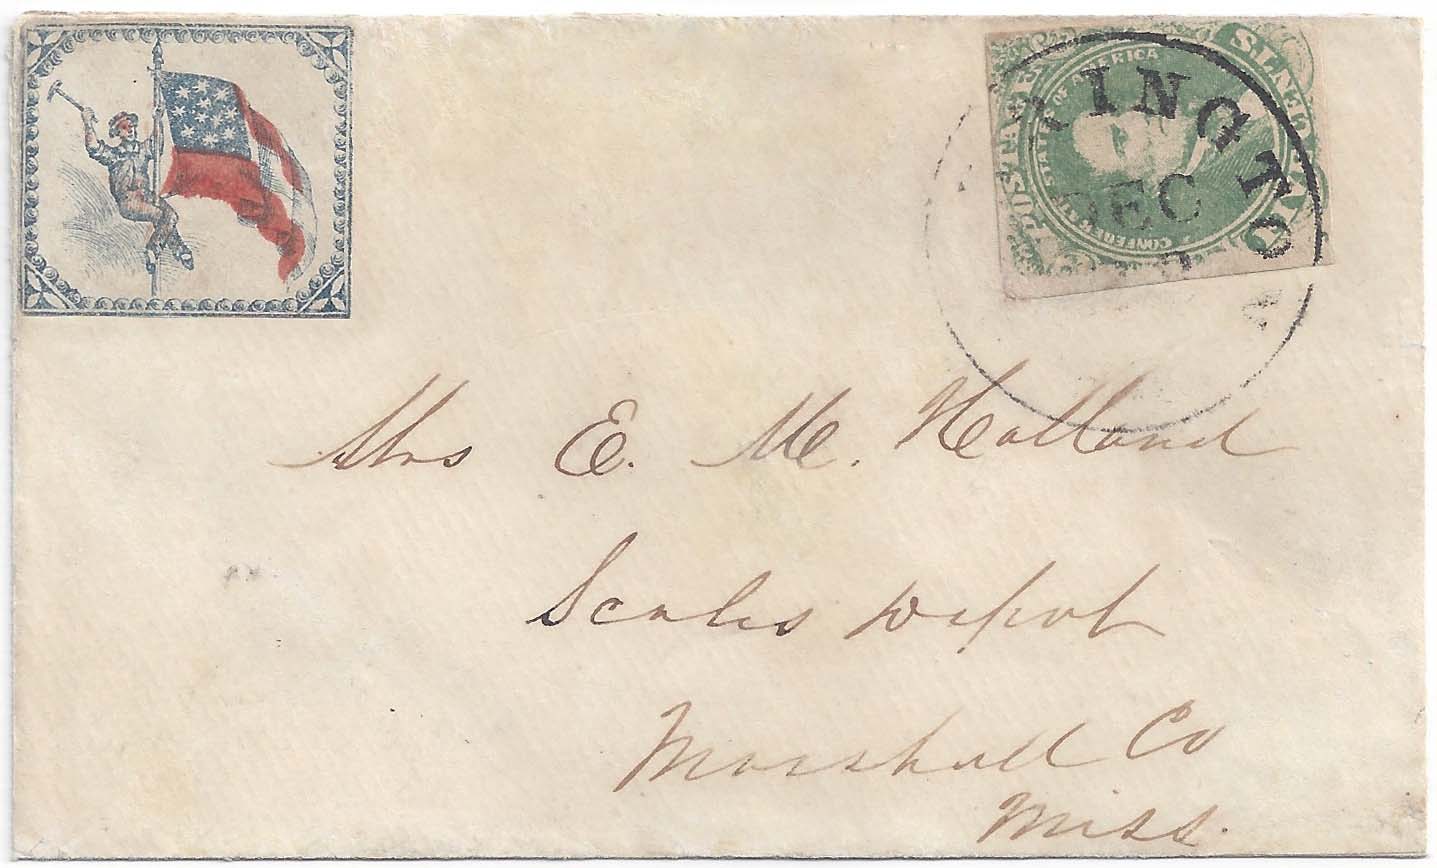 POSTAGE
CONFEDERATE STATES OF AMERICA
CENTS
RINGTO
DEC
Mrs E. M. Holland
Scales Depot
Marshall Co
Miss.